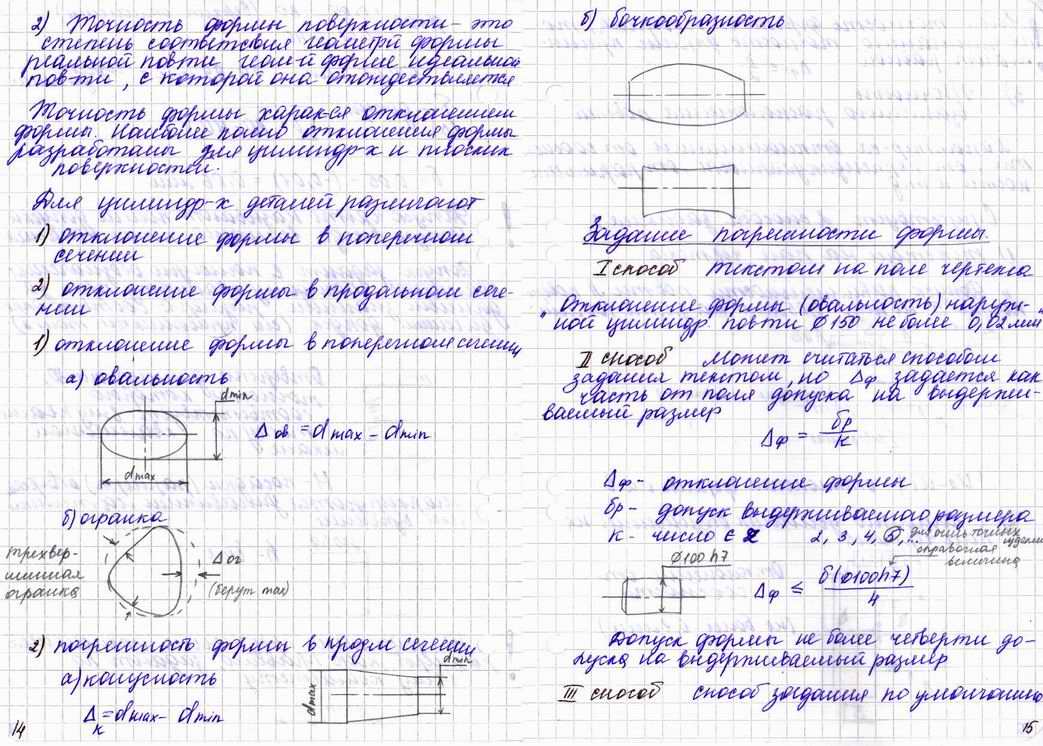 2) Точность формы поверхности - это
степень соответсвия геометр формы
реальной пов-ти геом-й форме идеальной
пов-ти, с которой она отождествляется
Точность формы харак-ся отклонением
формы. Наиболее полно отклонения формы
разработаны для цилиндр-х и плоских
поверхностей.
Для цилиндр-х деталей различают
1) отклонение формы в поперечном
сечении
2) отклонение формы в продольном сече-
нии
1) отклонение формы в поперечном сечении
а) овальность
dmin
Δов = dmax - dmin
dmax
б) огранка
трехвер-
шинная
огранка
Δог
(берут max)
2) погрешность формы в прод-м сечении
а) конусность
dmax
dmin
Δк = dmax - dmin
14
б) бочкообразность
Задание погрешности формы
I способ текстом на поле чертежа
"Отклонение формы (овальность) наруж-
ной цилиндр пов-ти Ø150 не более 0,02 мм"
II способ Может считаться способом
задания текстом, но Δф задается как
часть от поля допуска на выдержи-
ваемый размер
Δф = δр/к
Δф - отклонение формы
δр - допуск выдерживаемого размера
к - число ∈ Z 2, 3, 4, 8, ...
для очень точных изделий
справочная
величина
Ø100h7
Δф ≤ δ(Ø100h7)/4
Допуск формы не более четверти до-
пуска на выдерживаемый размер
III способ способ задания по умолчанию
15